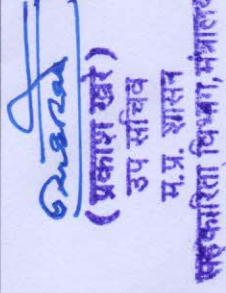 (प्रकाश खरे)
उप सचिव
म.प्र. शासन
सहकारिता विभाग, मंत्रालय